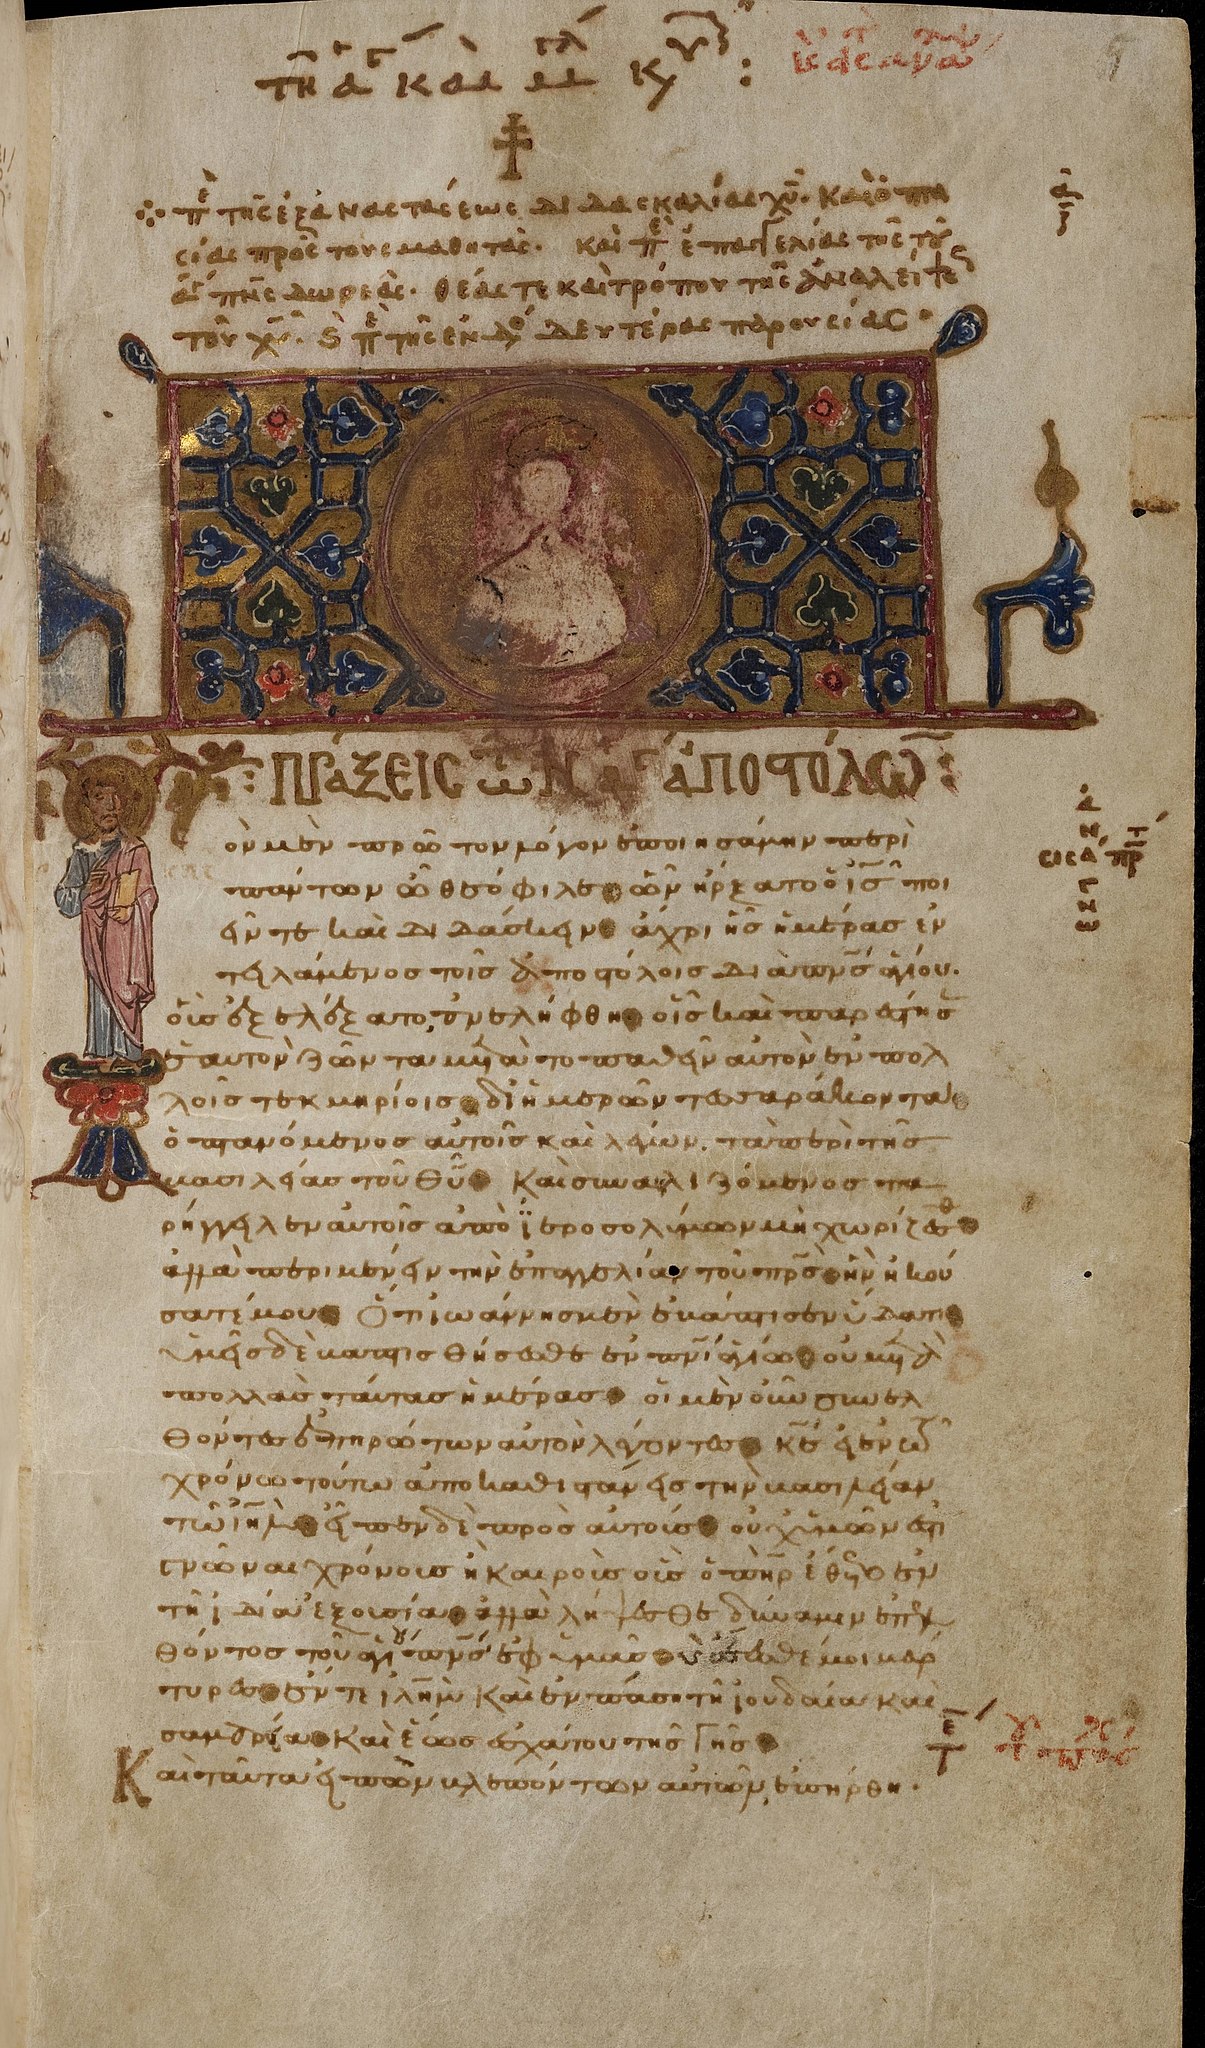 τῇ ἁγ κ μεγαλ κυ :
πε τῆς ἐξ ἀναστάσεως διδασκαλίας χυ. Καὶ ὀπτα
σίας πρὸς τοὺς μαθητάς. Καὶ πε ἐπαγγελίας τῆς τοῦ
ἁγ πνς δωρεάς. θέας τε καὶ τρόπου τῆς ἀναλείψε
τοῦ χυ. πε τῆς ἐνδο δευτέρας παρουσίας
ΠΡΑΞΕΙΣ ΤΩΝ ΑΓ ΑΠΟΣΤΟΛΩΝ:
ὸν μὲν πρῶτον λόγον ἐποιησάμην περὶ
πάντων ὦ θεόφιλε. ὧν ἤρξατο ὁ ις ποι
εῖν τε καὶ διδάσκειν. ἄχρι ἧς ἡμέρας ἐν
τειλάμενος τοῖς ἀποστόλοις διὰ πνς ἁγίου.
οὓς ἐξελέξατο, ἀνελήφθη. οἷς καὶ παρέστησ
ε αυτὸν ζῶντα μετὰ τὸ παθεῖν αὐτὸν ἐν πολ
λοῖς τεκμηρίοις. δι ἡμερῶν τεσσαράκοντα
ὀπτανόμενος αὐτοῖς καὶ λέγων. τὰ περὶ τῆς
βασιλείας τοῦ θυ. Καὶ συναλιζόμενος πα
ρήγγειλεν αὐτοῖς ἀπὸ ϊεροσολύμων μὴ χωρίζεσθ
ἀλλὰ περιμένειν τὴν ἐπαγγελίαν τοῦ πρς. ἣν ἠκού
σατέ μου. Ὅτι ιωάννης μὲν ἐβάπτισεν ὕδατι.
ὑμεῖς δὲ βαπτισθήσεσθε ἐν πνι ἁγίω. οὐ μετὰ
πολλὰς ταύτας ἡμέρας. οἱ μὲν οὖν συνελ
θόντες ἐπηρώτων αὐτὸν λέγοντες. κε εἰ ἐν τῶ
χρόνω τούτω ἀποκαθιστάνεις τὴν βασιλείαν
τῶ ιηλ. εἶπεν δὲ πρὸς αὐτούς. οὐχ ὑμῶν ἐστ
γνῶναι χρόνους ἢ καιροὺς οὓς ὁ πηρ ἔθετο ἐν
τῆ ιδία ἐξουσία. ἀλλὰ λήψεσθε δύναμιν ἐπελ
θόντος τοῦ ἁγίου πνς ἐφ ὑμᾶς. καὶ ἔσεσθέ μοι μάρ
τυρες. ἔν τε ιλημ Καὶ ἐν πάση τῆ ιουδαία καὶ
σαμαρεία. Καὶ ἕως ἐσχάτου τῆς γῆς.
Καὶ ταῦτα εἰπὼν βλεπόντων αὐτῶν, ἐπήρθη.